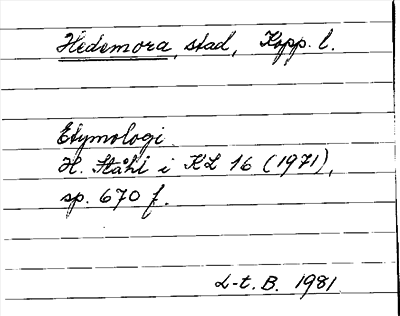 Hedemora, stad, Kopp. l.
Etymologi.
H. Ståhl i KL 16 (1971),
sp. 670 f.
L-t. B. 1981